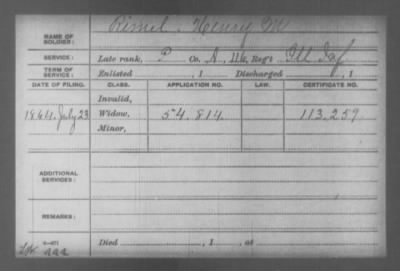 NAME OF SOLDIER: Rimel, Henry M
SERVICE: Late rank, P Co. A, 116, Reg't Ill Inf
TERM OF SERVICE: Enlisted , 1 Discharged , 1
DATE OF FILING. CLASS. APPLICATION NO. LAW. CERTIFICATE NO.
Invalid,
1864. July 23 Widow, 54.814 113.259
Minor,
ADDITIONAL SERVICES:
REMARKS:
Died , 1 , at